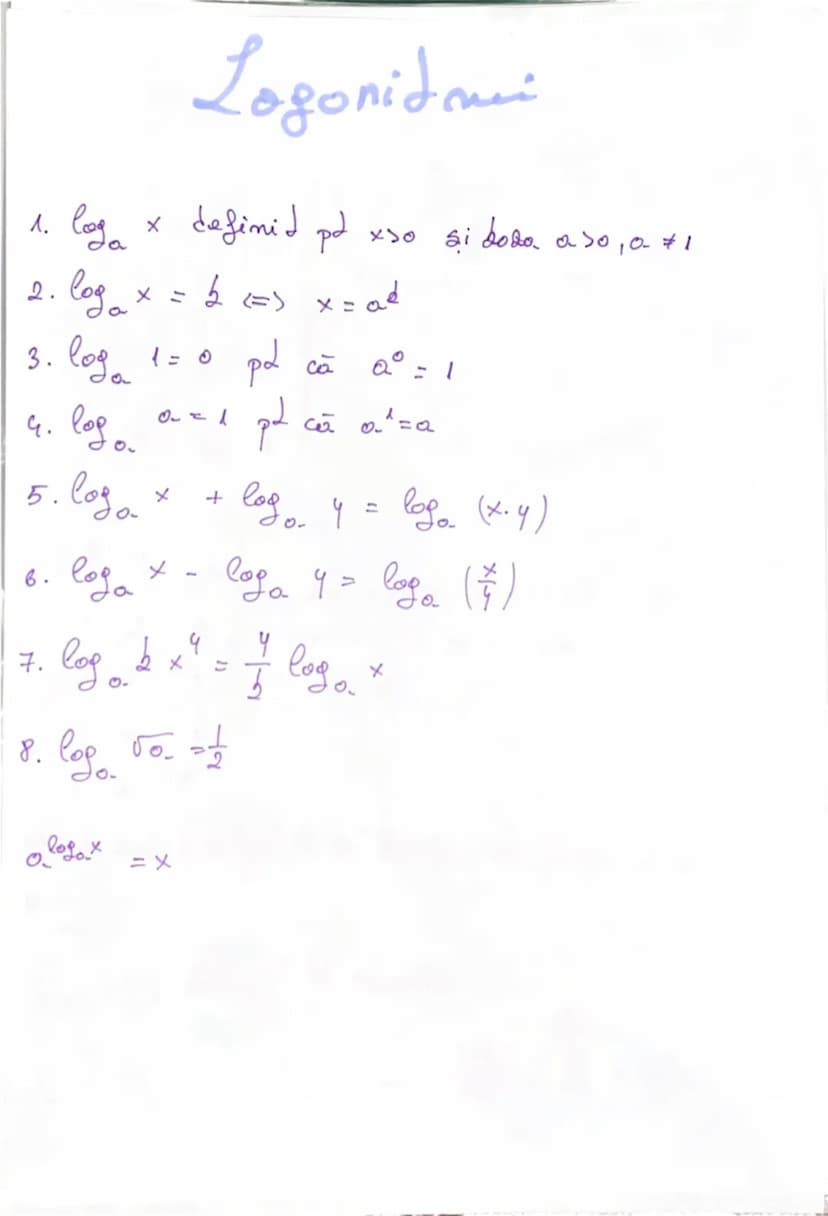 Logaritmi
1. logₐ x definit pt x>0 și baza a>0, a ≠ 1
2. logₐ x = b <=> x = aᵇ
3. logₐ 1 = 0 pt că a⁰ = 1
4. logₐ a = 1 pt că a¹ = a
5. logₐ x + logₐ y = logₐ (x·y)
6. logₐ x - logₐ y = logₐ (x/y)
7. logₐ b x^y = y/b logₐ x
8. logₐ √a = 1/2
a^(logₐ x) = x